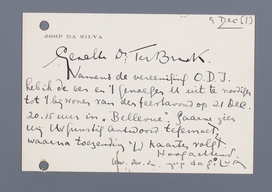 9 Dec
JOOP DA SILVA
Geachte Dr Ter Braak.
Namens de vereeniging O.D.I.
heb ik de eer en 't genoegen U uit te noodigen
tot 't bijwonen van den feestavond op 21 Dec.
20.15 uur in "Bellevue". Gaarne zien
wij Uw gunstig antwoord tegemoet,
waarna toezending der kaarten volgt.
Hoogachtend